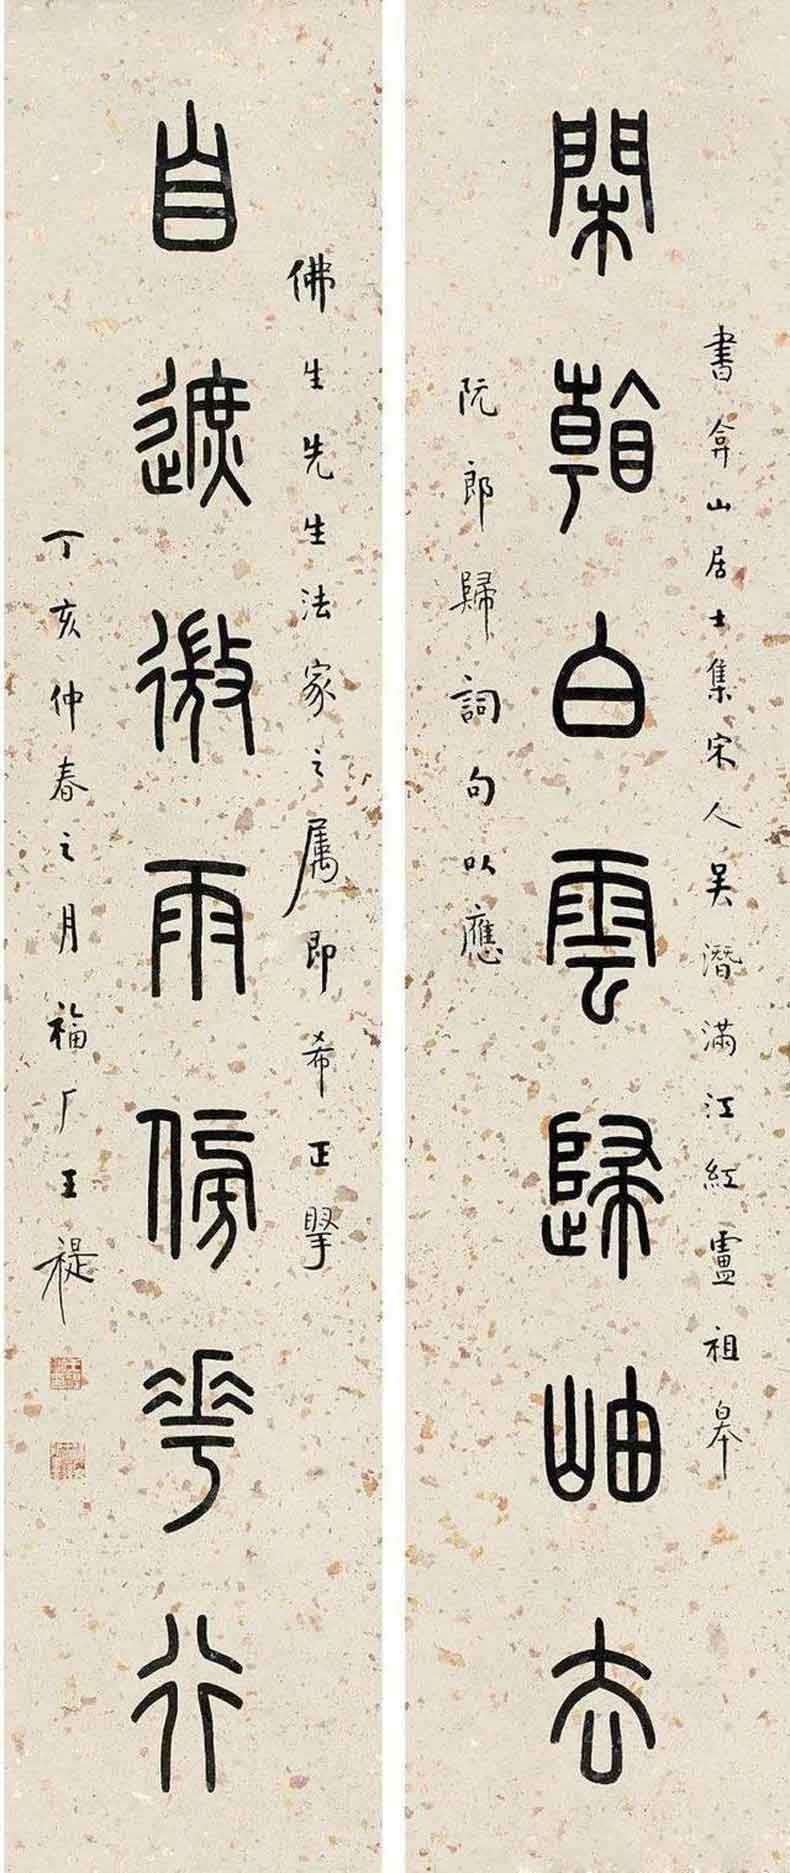 書弇山居士集宋人吳潛滿江紅盧祖皋
閑看白雲歸岫去
阮郎歸詞句以應
佛生先生法家之属即希正掔
自遮微雨傍花行
丁亥仲春之月福厂王禔